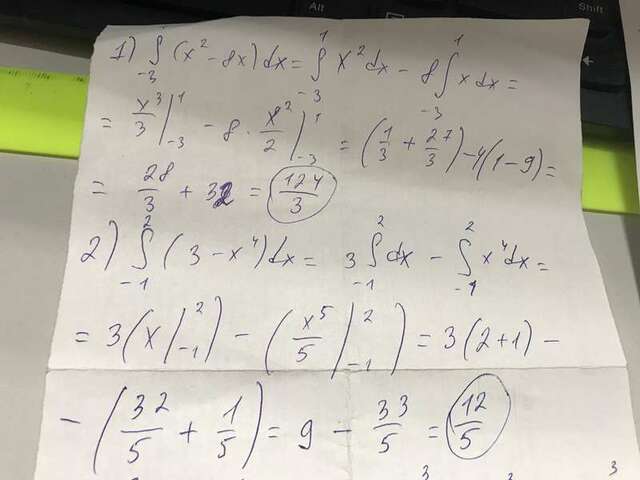 Alt
Shift
1) ∫₋₃¹ (x² - 8x) dx = ∫₋₃¹ x² dx - 8 ∫₋₃¹ x dx =
= x³/3 |₋₃¹ - 8 · x²/2 |₋₃¹ = (1/3 + 27/3) - 4(1 - 9) =
= 28/3 + 32 = 124/3
2) ∫₋₁² (3 - x⁴) dx = 3 ∫₋₁² dx - ∫₋₁² x⁴ dx =
= 3 (x |₋₁²) - (x⁵/5 |₋₁²) = 3 (2 + 1) -
- (32/5 + 1/5) = 9 - 33/5 = 12/5
3 3 3